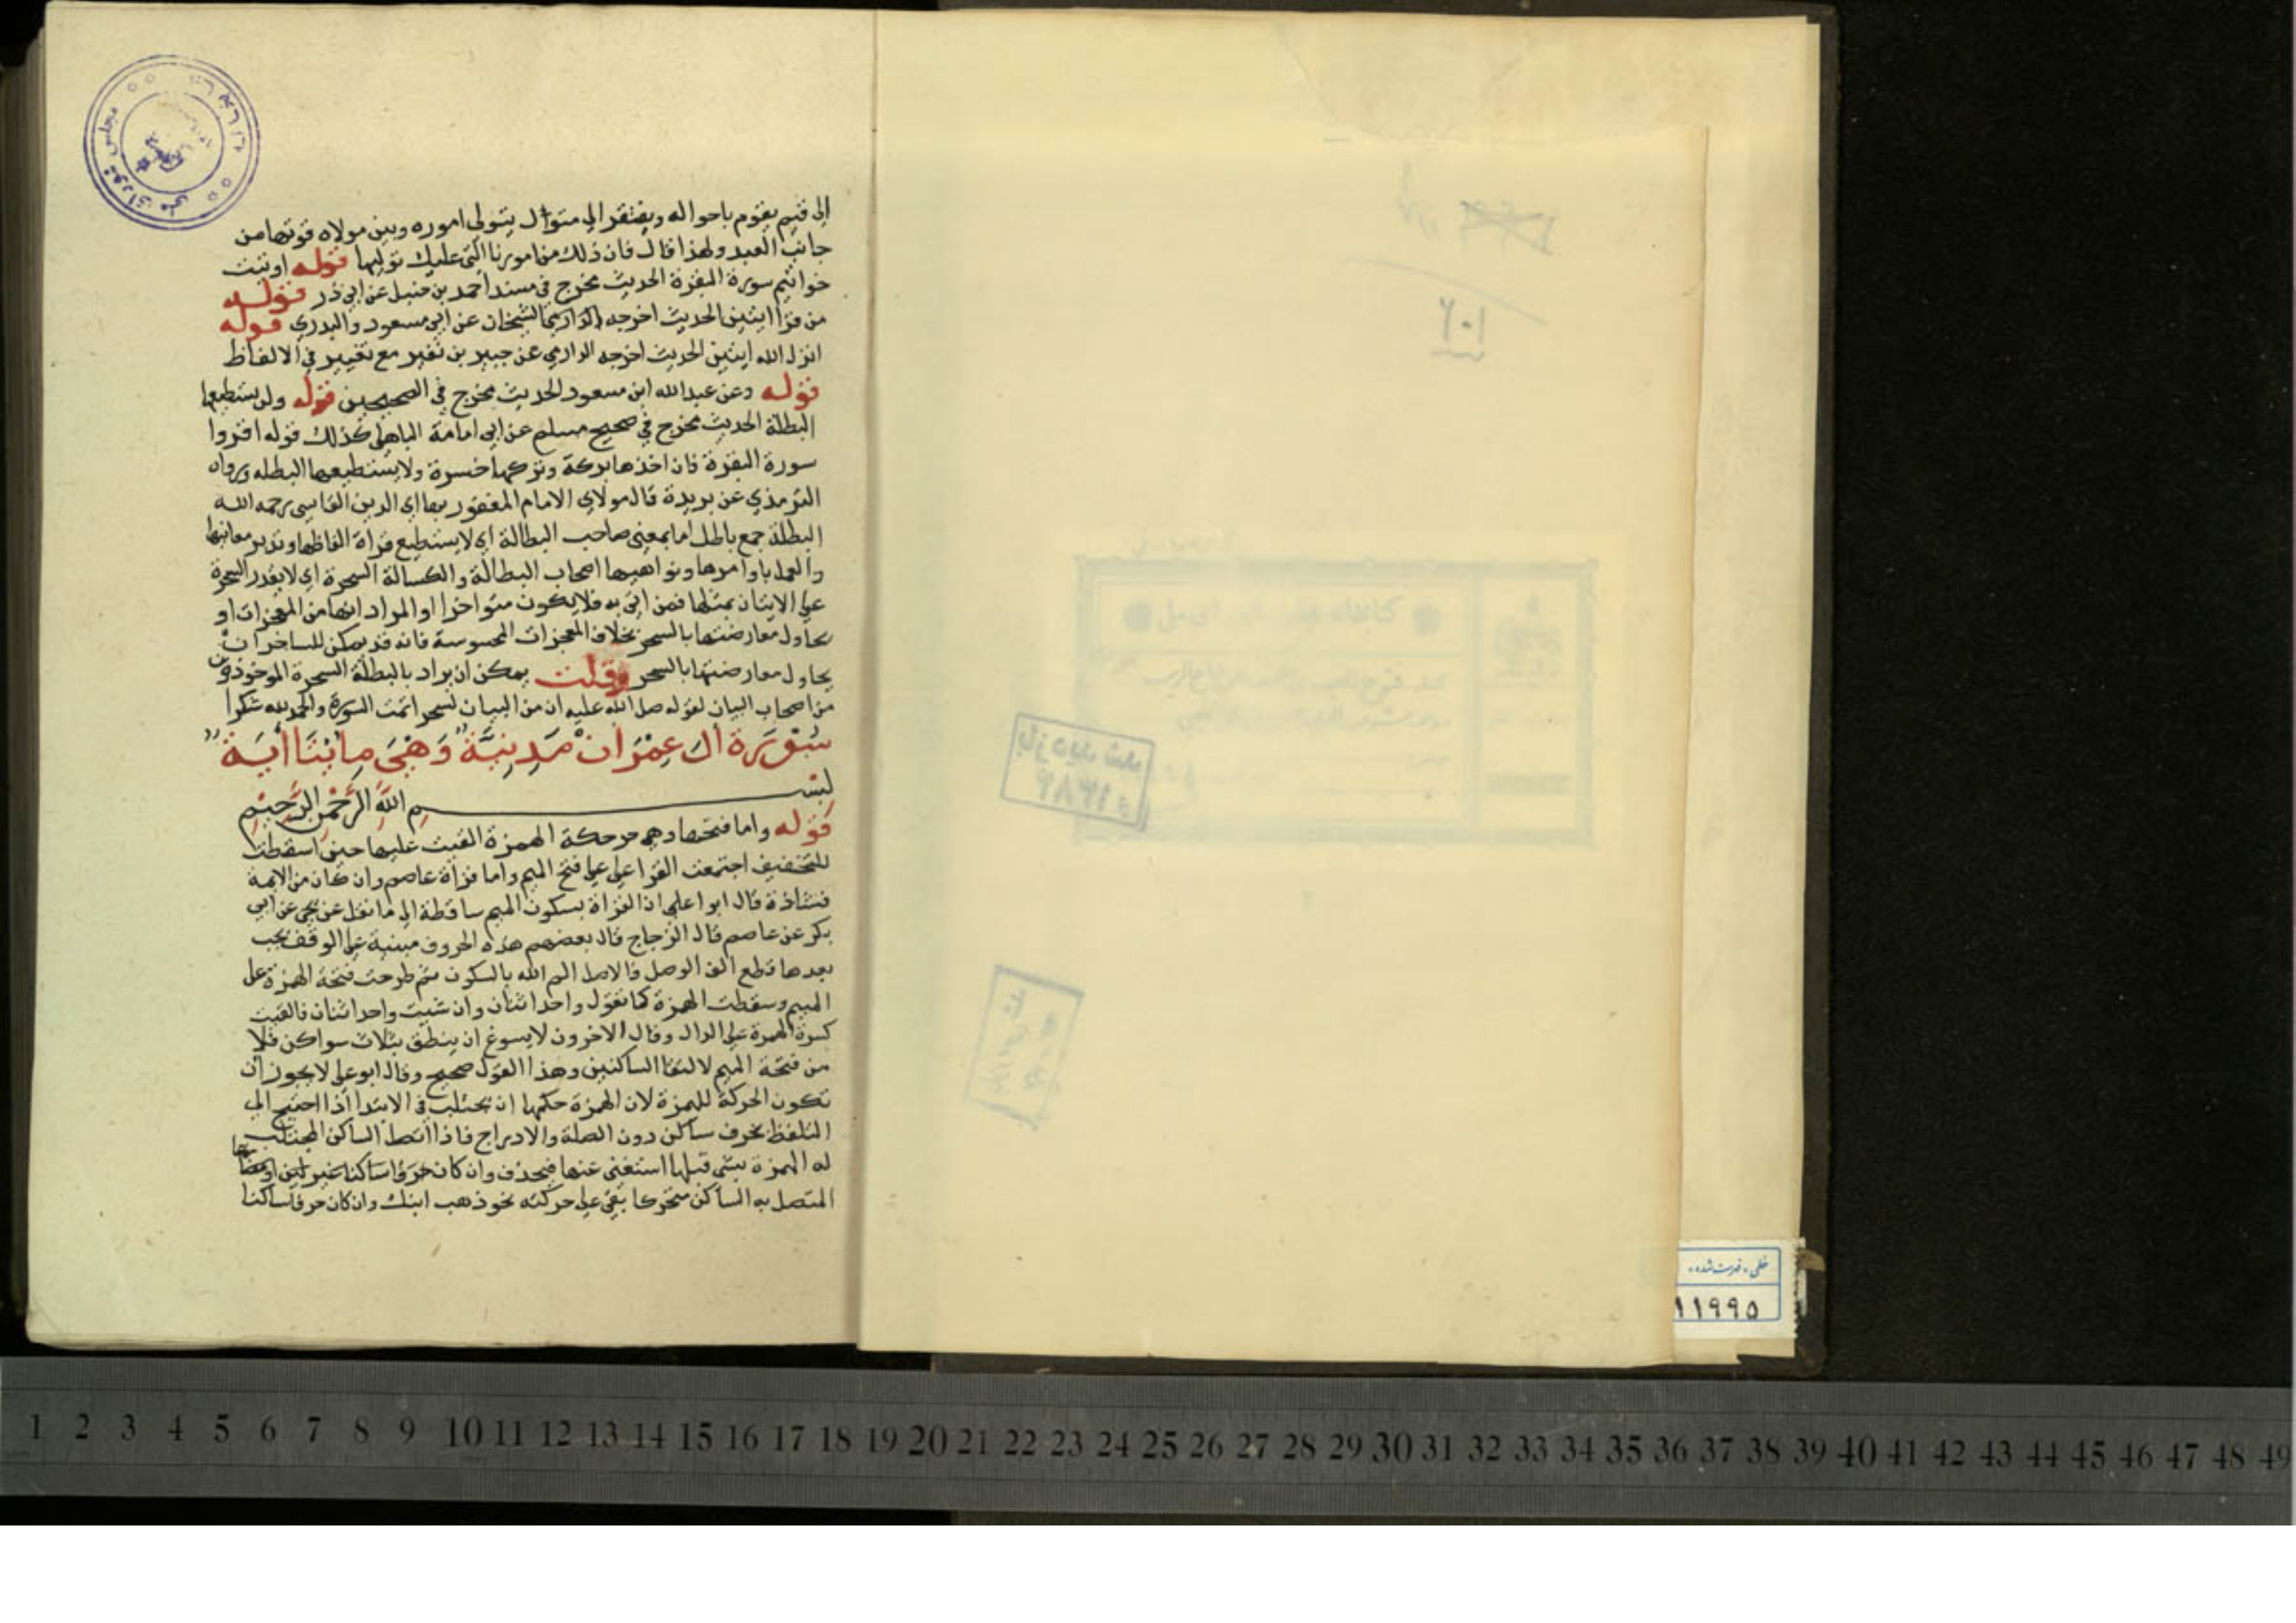 الى قيم يقوم باحواله ويفتقر الى متوال يتولى اموره وبين مولاه فوتها من
جانب العبد ولهذا قال فان ذلك من امورنا التي عليك توليها قوله اوتيت
خواتيم سورة البقرة الحديث مخرج في مسند احمد بن حنبل عن ابي ذر قوله
من قرا ايتين الحديث اخرجه الشيخان عن ابي مسعود والبدري قوله
انزل الله ايتين الحديث اخرجه الدارمي عن جبير بن نفير مع تغيير في الالفاظ
قوله وعن عبدالله ابن مسعود الحديث مخرج في الصحيحين قوله ولن يستطيعها
البطلة الحديث مخرج في صحيح مسلم عن ابي امامة الباهلي كذلك قوله اقروا
سورة البقرة فان اخذها بركة وتركها خسرة ولا يستطيعها البطله ورواه
الترمذي عن بريدة قال مولاي الامام المغفور بهااي الدين القاسي رحمه الله
البطلة جمع باطل اما بمعنى صاحب البطالة اي لا يستطيع قراة الفاظها وتدبر معانيها
والعمل باوامرها ونواهيها اصحاب البطالة والكسالة السحرة اي لا يقدر السحرة
على الاتيان بمثلها فمن اتى به فلا يكون متواخرا او المراد انها من المعجزات او
يحاول معارضتها بالسحر بخلاف المعجزات المحسوسة فانه قد يمكن للساحر ان
يحاول معارضتها بالسحر وقلت يمكن ان يراد بالبطلة السحرة الموخوذة من
من اصحاب البيان لقوله صلى الله عليه ان من البيان لسحر اتمت السورة والحمد لله شكرا
سورة ال عمران مدنية وهي مايتا اية
بسم الله الرحمن الرحيم
قوله واما فتحها دهى حركة الهمزة القيت عليها حين اسقطت
للتخفيف اجتمعت القرا على على فتح الميم واما قراة عاصم وان كان من الايمة
فشاذة قال ابوا على ان القراة بسكون الميم ساقطة الى ما نقل عن يحي عن ابي
بكر عن عاصم قال الزجاج قال بعضهم هذه الحروف مبنية على الوقف يجب
بعدها قطع الف الوصل فالاصل الم الله بالسكون ثم طرحت فتحة الهمزة على
الميم وسقطت الهمزة كما تقول واحد اثنان وان شيت واحد اثنان فالقيت
كسرة الهمزة على الدال وقال الاخرون لا يسوغ ان ينطق بثلاث سواكن فلا
من فتحة الميم لالتقا الساكنين وهذا القول صحيح وقال ابو على لا يجوز ان
تكون الحركة للهمزة لان الهمزة حكمها ان يجتلب في الابتدا اذا احتيج الى
التلفظ بحرف ساكن دون الصلة والادراج فاذا اتصل الساكن المجتلب
له الهمزة بشي قبلها استغنى عنها فيحذف وان كان حرفا ساكنا غير لين
المتصل به الساكن متحركا بقى على حركته نحو ذهب ابنك وان كان حرفا ساكنا
مجلس شورای ملی
۱۰۶
خطی - فهرست شده
۱۱۹۹۵
1 2 3 4 5 6 7 8 9 10 11 12 13 14 15 16 17 18 19 20 21 22 23 24 25 26 27 28 29 30 31 32 33 34 35 36 37 38 39 40 41 42 43 44 45 46 47 48 49